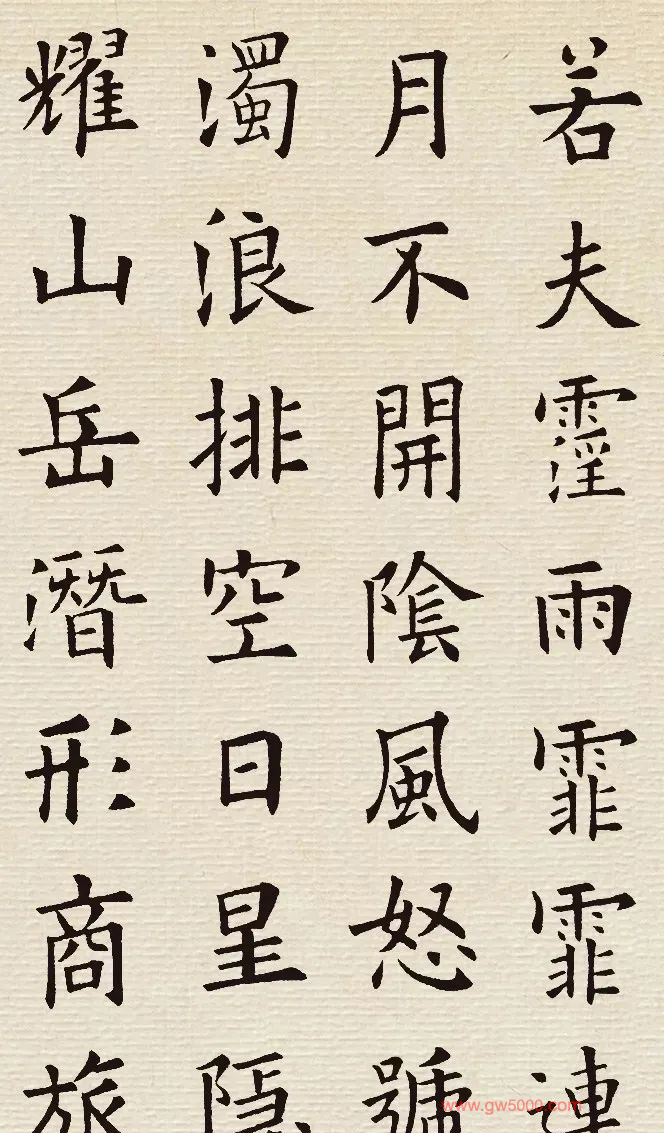 若夫霪雨霏霏連
月不開陰風怒號
濁浪排空日星隱
耀山岳潛形商旅
www.gw5000.com